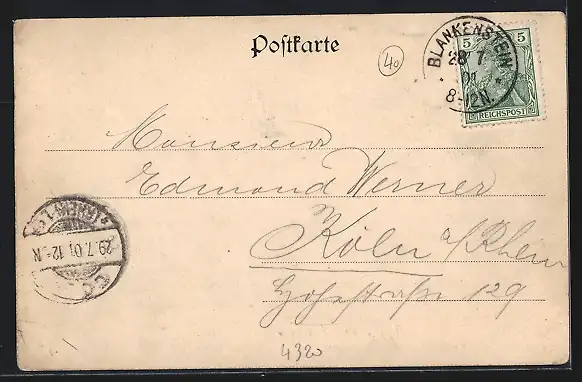 Postkarte
40
BLANKENSTEIN
28 7
01
8-12N.
5 5
REICHSPOST
Monsieur
Edmond Werner
Köln a/Rhein
29.7.01.12-N
129
4320